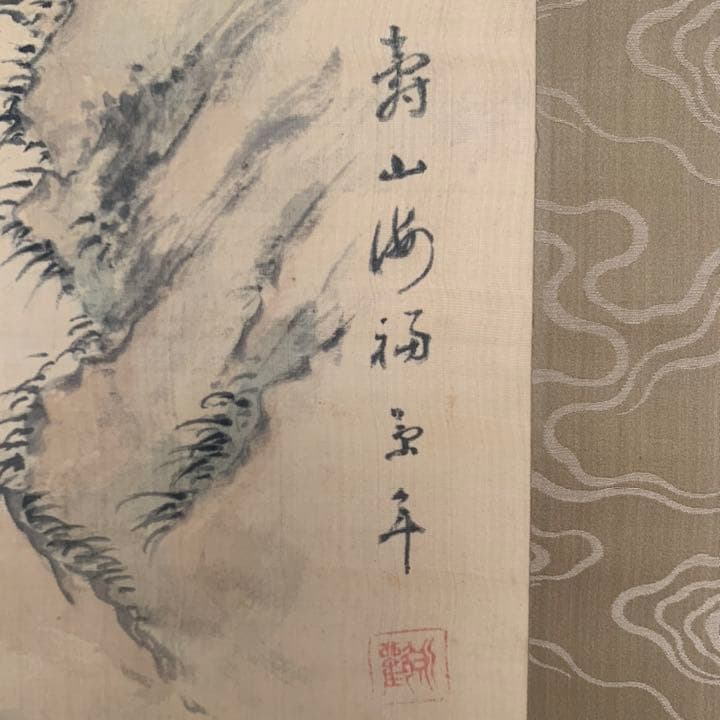 壽山海福 景年